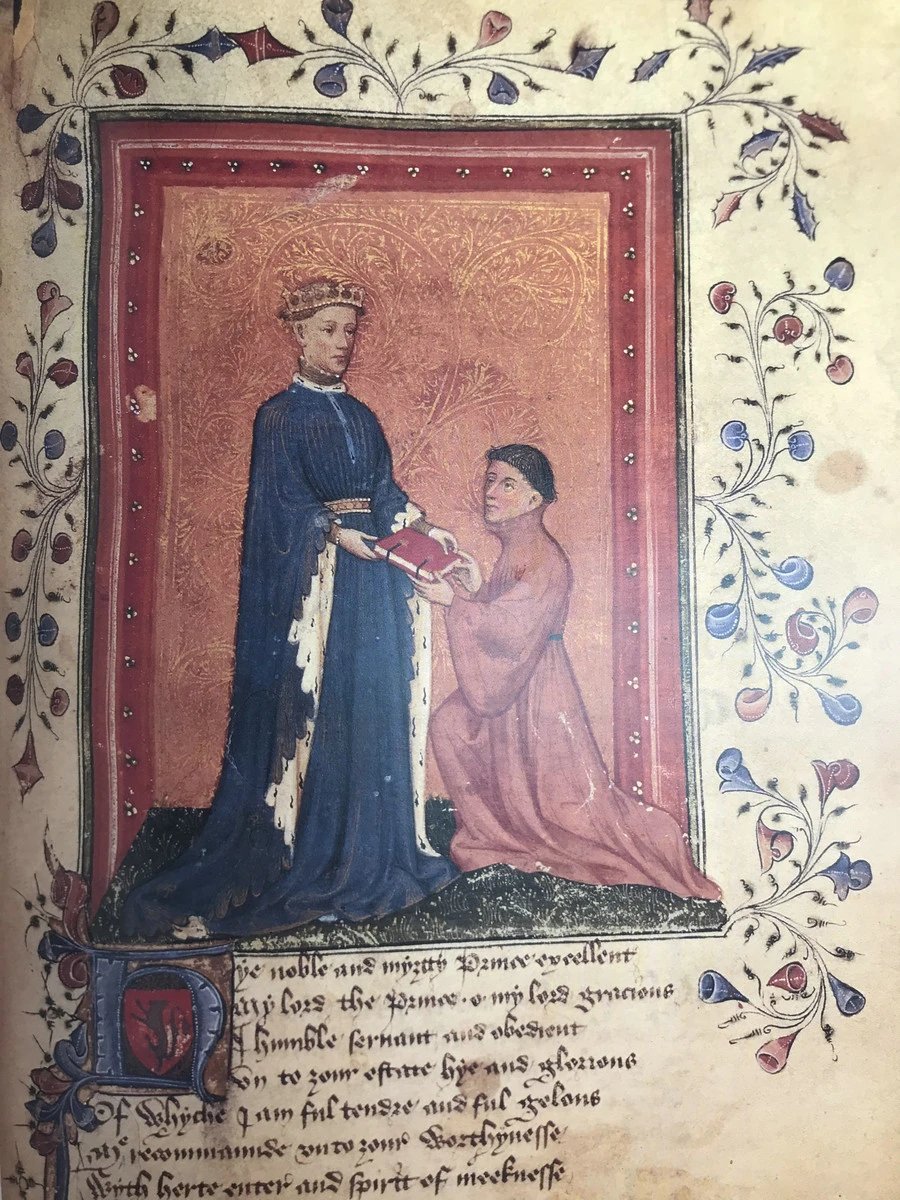 Hye noble and myȝtty Prince excellent
My lord the Prince o my lord gracious
I humble seruant and obedient
Vn to ȝour estate hye and glorious
Of Whyche I am ful tendre and ful gelous
Me recommaunde vnto ȝour Worthynesse
Wyth herte enter and spirit of meeknesse